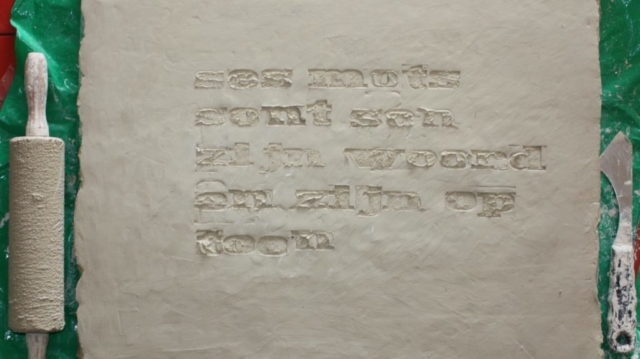 ses mots
sont sen
zijn woord
en zijn op
toon